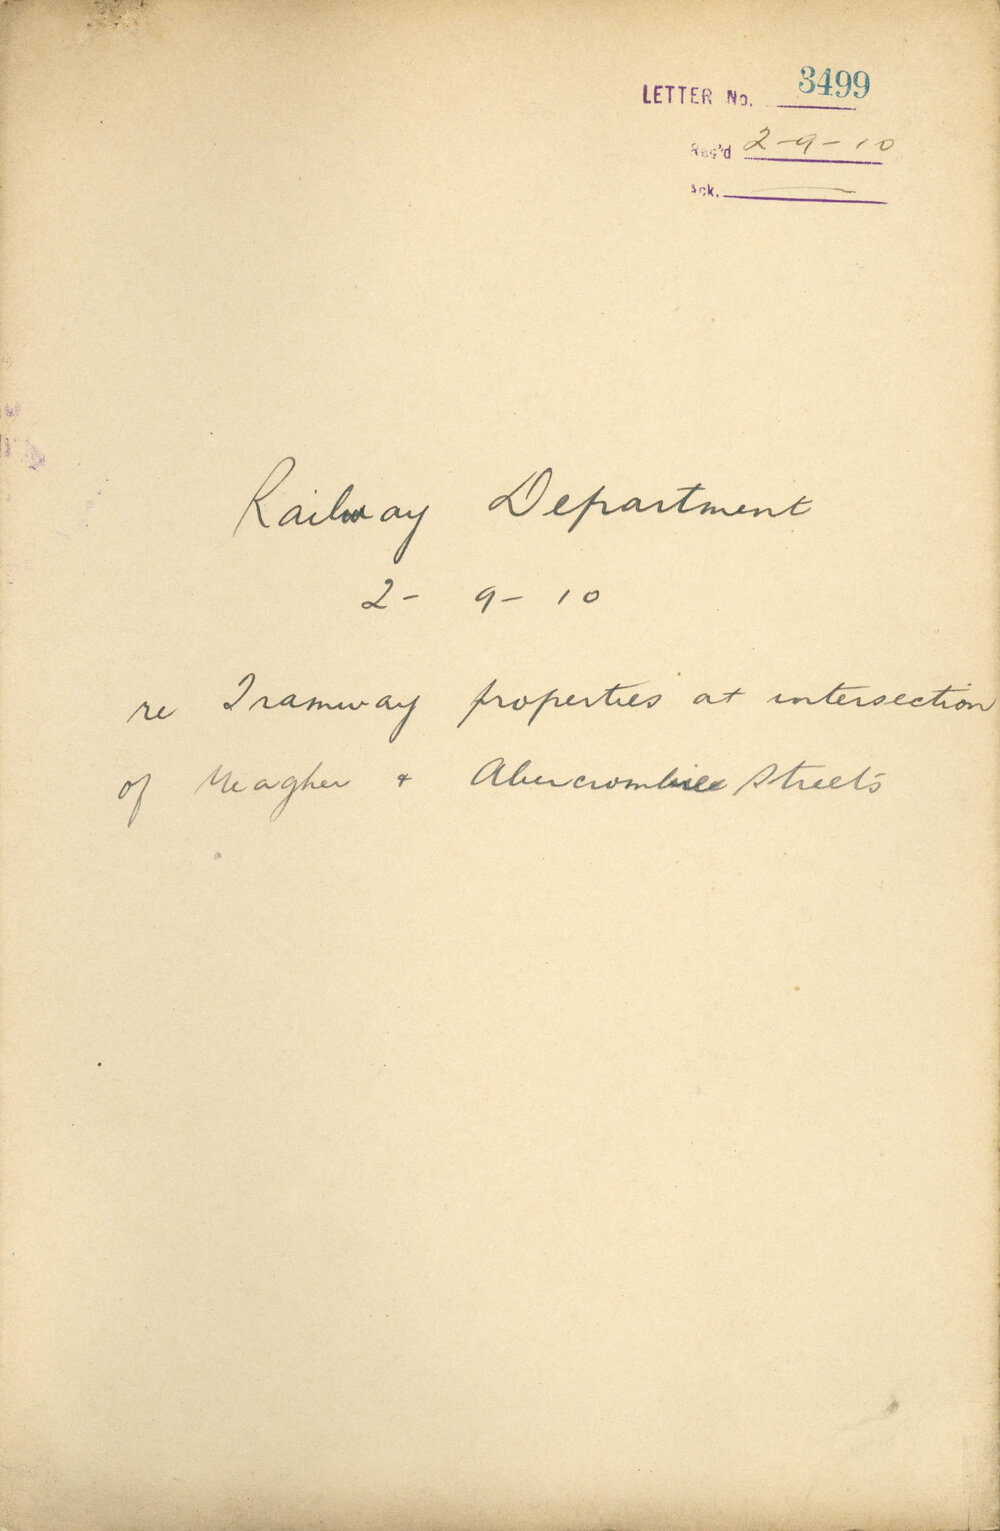 LETTER No. 3499
Rec'd 2-9-10
Ack.
Railway Department
2-9-10
re Tramway properties at intersection
of Meagher & Abercrombie Streets